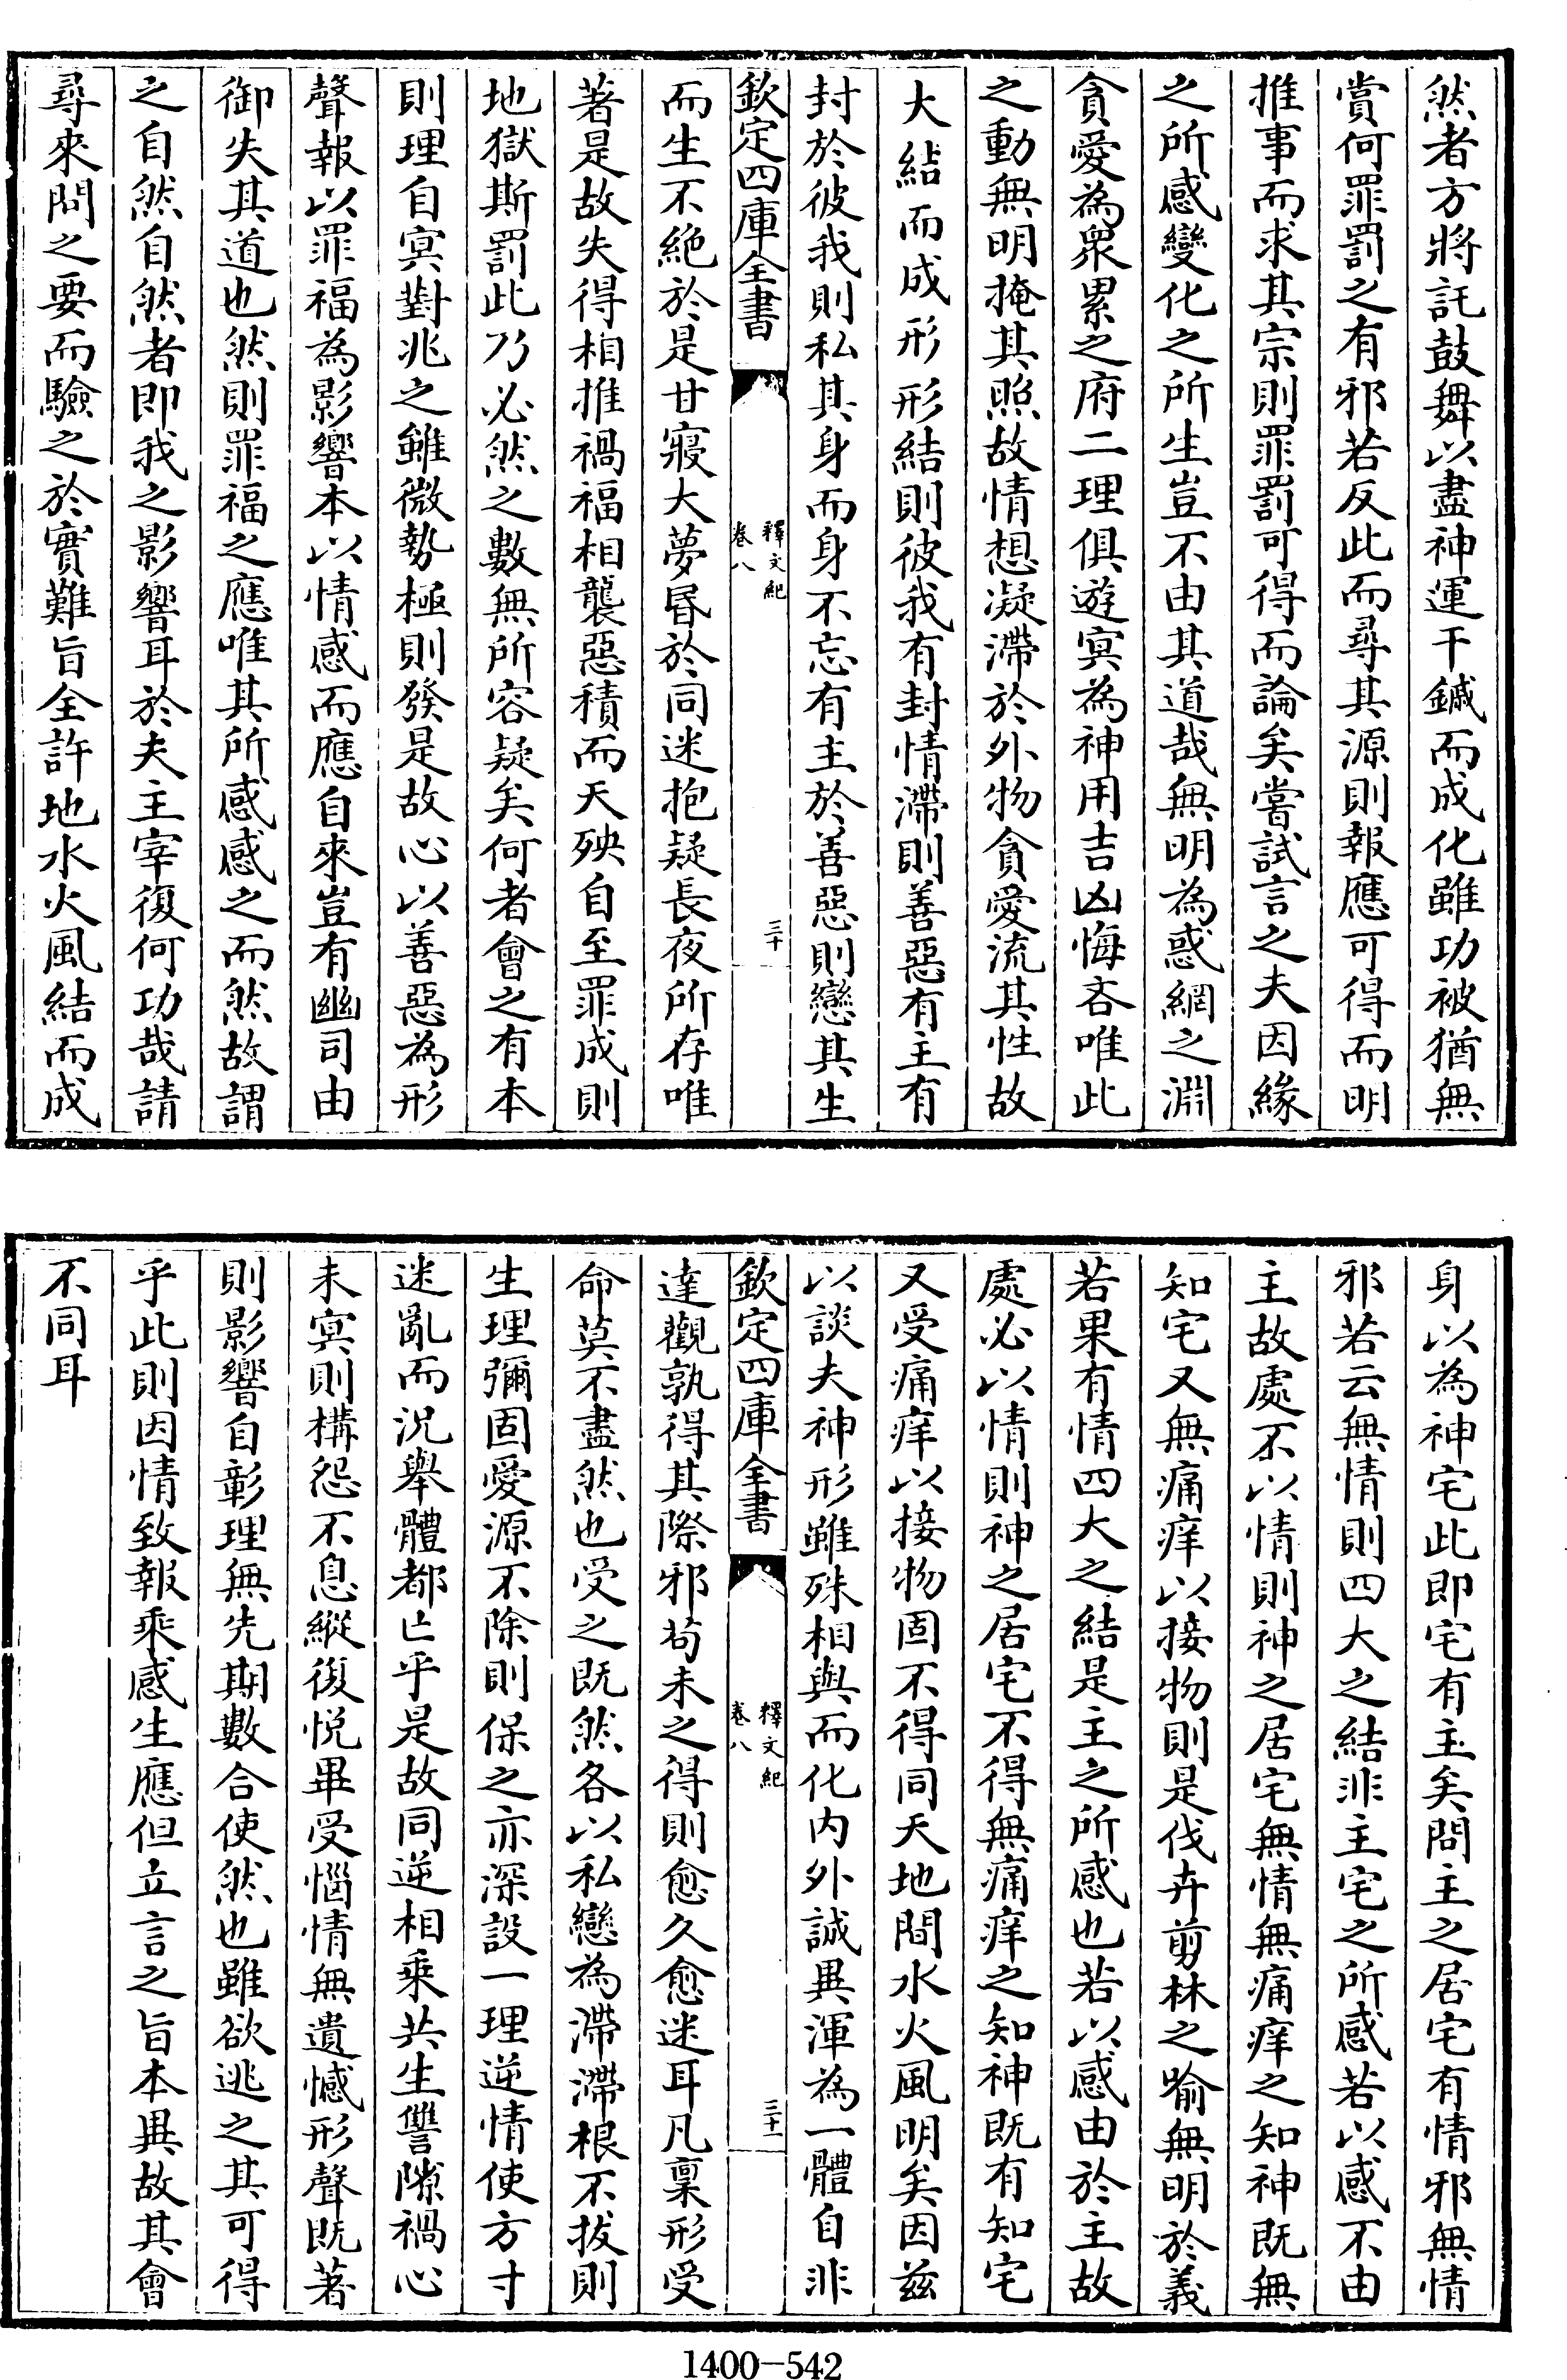 然者方將託鼓舞以盡神運干鏚而成化雖功被猶無
賞何罪罰之有邪若反此而尋其源則報應可得而明
推事而求其宗則罪罰可得而論矣嘗試言之夫因緣
之所感變化之所生豈不由其道哉無明為惑網之淵
貪愛為衆累之府二理俱遊冥為神用吉凶悔吝唯此
之動無明掩其照故情想凝滯於外物貪愛流其性故
大結而成形形結則彼我有封情滯則善惡有主有
封於彼我則私其身而身不忘有主於善惡則戀其生
欽定四庫全書
釋文紀
卷八
三十
而生不絶於是甘寢大夢昬於同迷抱疑長夜所存唯
著是故失得相推禍福相襲惡積而天殃自至罪成則
地獄斯罰此乃必然之數無所容疑矣何者會之有本
則理自冥對兆之雖微勢極則發是故心以善惡為形
聲報以罪福為影響本以情感而應自來豈有幽司由
御失其道也然則罪福之應唯其所感感之而然故謂
之自然自然者即我之影響耳於夫主宰復何功哉請
尋來問之要而驗之於實難旨全許地水火風結而成
身以為神宅此即宅有主矣問主之居宅有情邪無情
邪若云無情則四大之結非主宅之所感若以感不由
主故處不以情則神之居宅無情無痛痒之知神既無
知宅又無痛痒以接物則是伐卉剪林之喻無明於義
若果有情四大之結是主之所感也若以感由於主故
處必以情則神之居宅不得無痛痒之知神既有知宅
又受痛痒以接物固不得同天地間水火風明矣因兹
以談夫神形雖殊相與而化内外誠異渾為一體自非
欽定四庫全書
釋文紀
卷八
三十一
達觀孰得其際邪茍未之得則愈久愈迷耳凡稟形受
命莫不盡然也受之既然各以私戀為滯滯根不拔則
生理彌固愛源不除則保之亦深設一理逆情使方寸
迷亂而況舉體都亡乎是故同逆相乗共生讐隙禍心
未冥則構怨不息縱復悦畢受惱情無遺憾形聲既著
則影響自彰理無先期數合使然也雖欲逃之其可得
乎此則因情致報乘感生應但立言之旨本異故其會
不同耳
1400-542